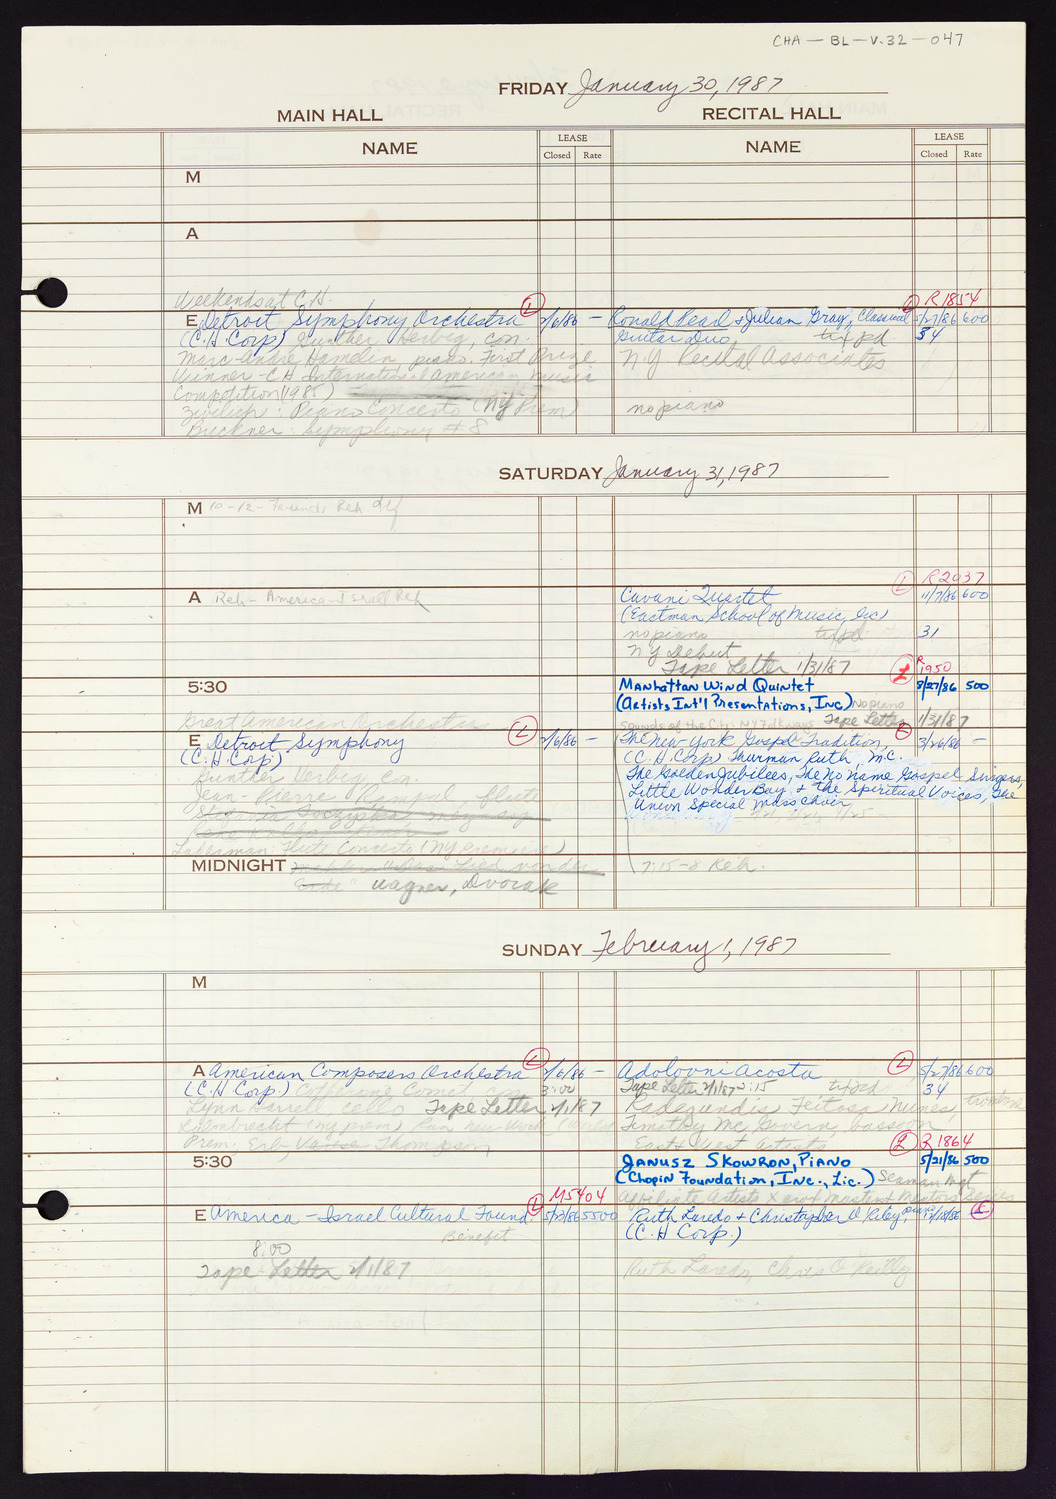 CHA - BL - V.32 - 047
FRIDAY January 30, 1987
MAIN HALL
RECITAL HALL
NAME
LEASE
Closed Rate
NAME
LEASE
Closed Rate
M
A
Weekends at C.H.
E Detroit Symphony Orchestra L 2/6/86 -
(C.H. Corp) Gunther Herbig, con.
Marc-André Hamelin piano. First Prize
Winner - CH International American Music
Competition (1985)
Zwilich: Piano Concerto (NY Prem)
Bruckner: Symphony #8
L R1854
Ronald Pearl + Julian Gray, Classical 5/27/86 600
Guitar Duo, tix pd 34
NY Recital Associates
no piano
SATURDAY January 31, 1987
M 10-12-
A Reh - American
5:30
Great American Orchestras
E Detroit Symphony L 2/6/86 -
(C.H. Corp)
Gunther Herbig, Con.
Jean-Pierre Rampal flute
Flute Concerto (NY Premiere)
MIDNIGHT
Wagner, Dvorak
L R2037
Cavani Quartet 11/7/86 600
(Eastman School of Music, Inc)
no piano 31
NY Debut
Tape Letter 1/31/87
L R1950
Manhattan Wind Quintet 8/27/86 500
(Artists Int'l Presentations, Inc) No piano
Sounds of the City: NY Folkways Tape Letter 1/31/87
The New York Gospel Tradition, L 3/26/86 -
(C.H. Corp) Thurman Ruth, M.C.
The Golden Jubilees, The No Name Gospel Singers,
Little Wonder Boy + the Spiritual Voices, The
Union Special Mass Choir
7:15-8 Reh.
SUNDAY February 1, 1987
M
A American Composers Orchestra L 2/6/86 -
(C.H. Corp) 3:00
Lynn Harrell cello Tape Letter 2/1/87
Prem.
5:30
M5404
E America-Israel Cultural Found. L 5500
Benefit
8:00
Tape Letter 2/1/87
Adolovni Acosta L 5/27/86 600
Tape Letter 2/1/87 2:15 tix pd 34
Radegundis Feitosa Nunes, trombone
Timothy McGovern, bassoon
East & West Artists
L R1864
Janusz Skowron, Piano 5/21/86 500
(Chopin Foundation, Inc., Lic.) Seaman Mgt
Affiliate Artists Xerox
Ruth Laredo + Christopher O'Riley, L
(C.H Corp.)
Ruth Laredo, Chris O'Reilly